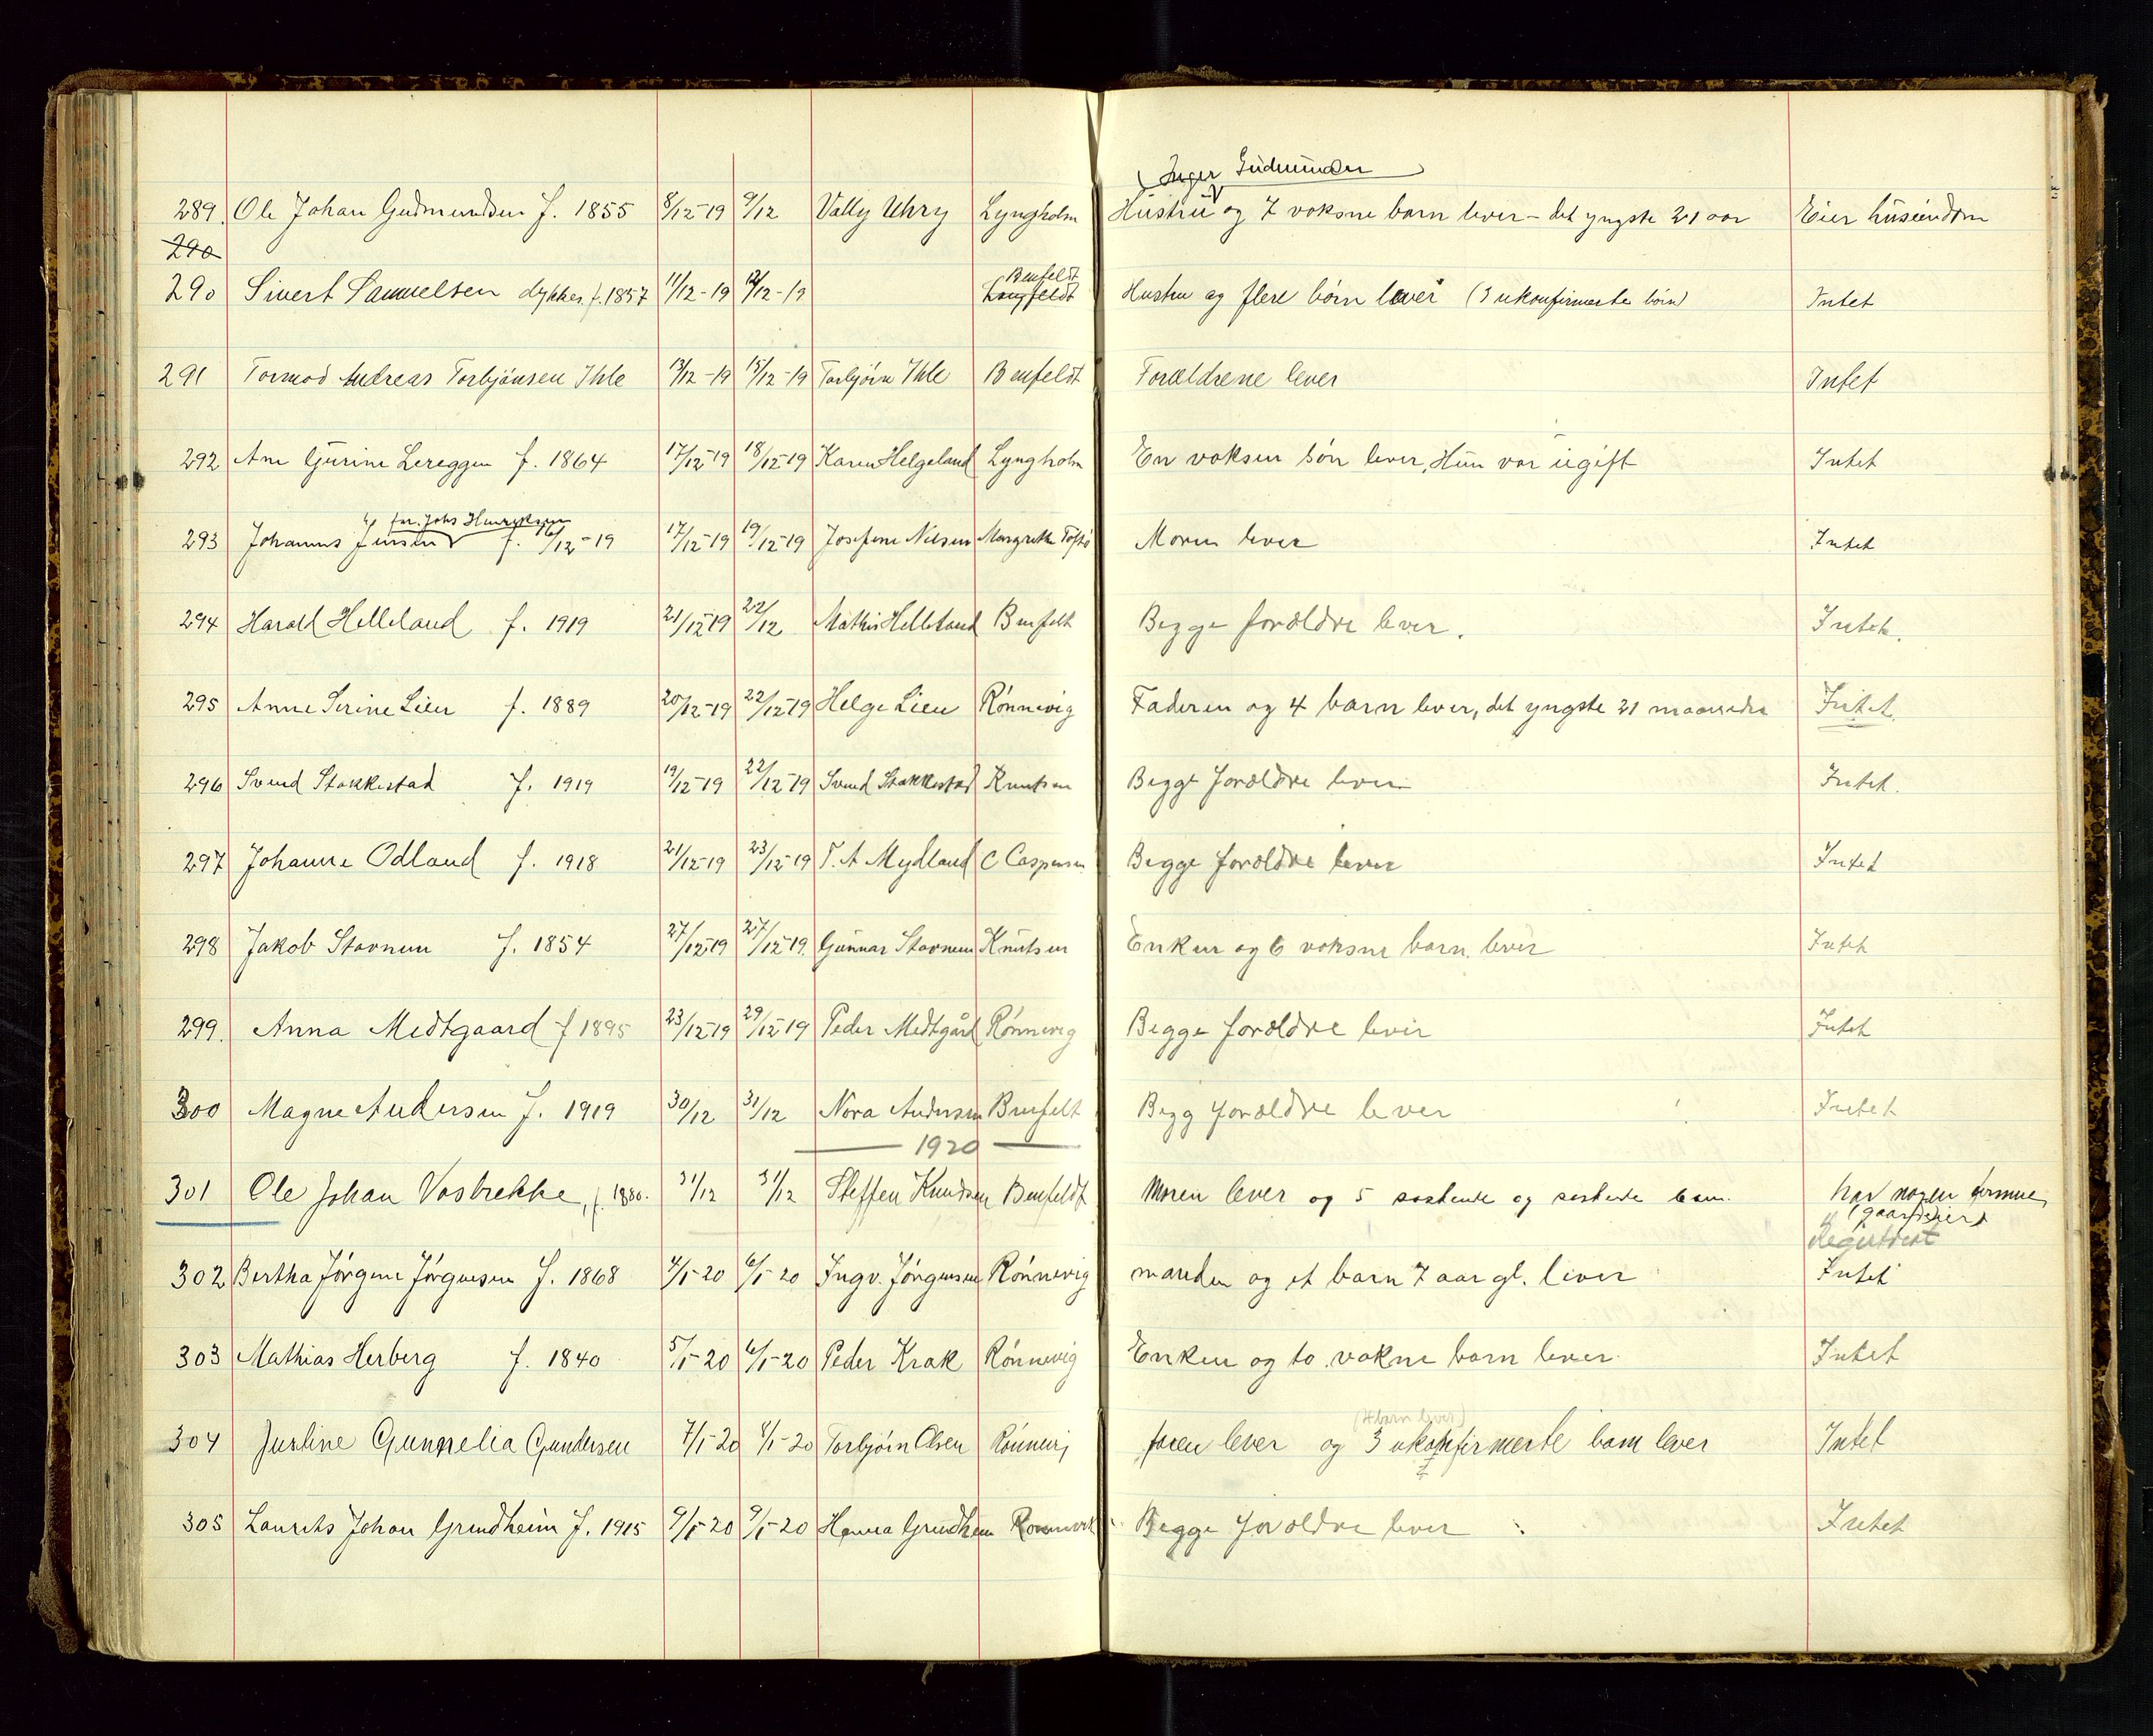 (Inger Gudmundsen)
289. Ole Johan Gudmundsen f. 1855 8/12-19 9/12 Vally Uhry Lyngholm Hustru og 7 voksne barn lever - det yngste 21 aar Eier huseiendom
290
Benfeldt
290 Sivert Samuelsen dykker f. 1857 11/12-19 12/12-19 Hustru og flere børn lever (3 ukonfirmerte børn) Intet
291 Tormod Andreas Torbjönsen Ihle 13/12-19 15/12-19 Torbjörn Ihle Benfeldt Forældrene lever Intet
292 Ane Gurine Lereggen f. 1864 17/12-19 18/12-19 Karen Helgeland Lyngholm En voksen sön lever, Hun var ugift Intet
far. Johs Henriksen
293 Johannes Jensen f. 16/12-19 17/12-19 19/12-19 Josefine Nilsen Margrethe Moren lever Intet
294 Harald Helleland f. 1919 21/12-19 22/12 Mathis Helleland Benfelt Begge forældre lever. Intet.
295 Anne Serine Lien f. 1889 20/12-19 22/12-19 Helge Lien Rönnevig Faderen og 4 barn lever, det yngste 21 maaneder Intet.
296 Svend Stakkestad f. 1919 19/12-19 22/12-19 Svend Stakkestad Knutsen Begge forældre lever Intet.
297 Johanne Odland f. 1918 21/12-19 23/12-19 T. A Mydland C Caspersen Begge forældre lever Intet
298 Jakob Stavnem f. 1854 27/12-19 27/12-19. Gunnar Stavnem Knutsen Enken og 6 voksne barn lever Intet
299. Anna Medtgaard f 1895 23/12-19 29/12-19 Peder Medtgård Rönnevig Begge forældre lever Intet
300 Magne Andersen f. 1919 30/12 31/12 Nora Andersen Benfelt Begg forældre lever Intet
1920
301 Ole Johan Vostrekke, f. 1880. 31/12 31/12 Steffen Knudsen Benfeldt Moren lever og 5 söskende og barn. har nogen formue
(gaardeier)
Registrert
302 Bertha Jörgine Jörgensen f. 1868 4/1-20 6/1-20 Ingv. Jörgensen Rönnevig manden og et barn 7 aar gl. lever Intet
303 Mathias Herberg f. 1840 5/1-20 6/1-20 Peder Krak Rönnevig Enken og to vokne barn lever. Intet
(4 barn lever)
304 Justine Gunnelia Gundersen 7/1-20 8/1-20 Torbjörn Olsen Rönnevig faren lever og 3 ukonfirmerte barn lever Intet
305 Laurits Johan Grindheim f. 1915 9/1-20 9/1-20 Hanna Grindheim Rönnevik Begge forældre lever Intet